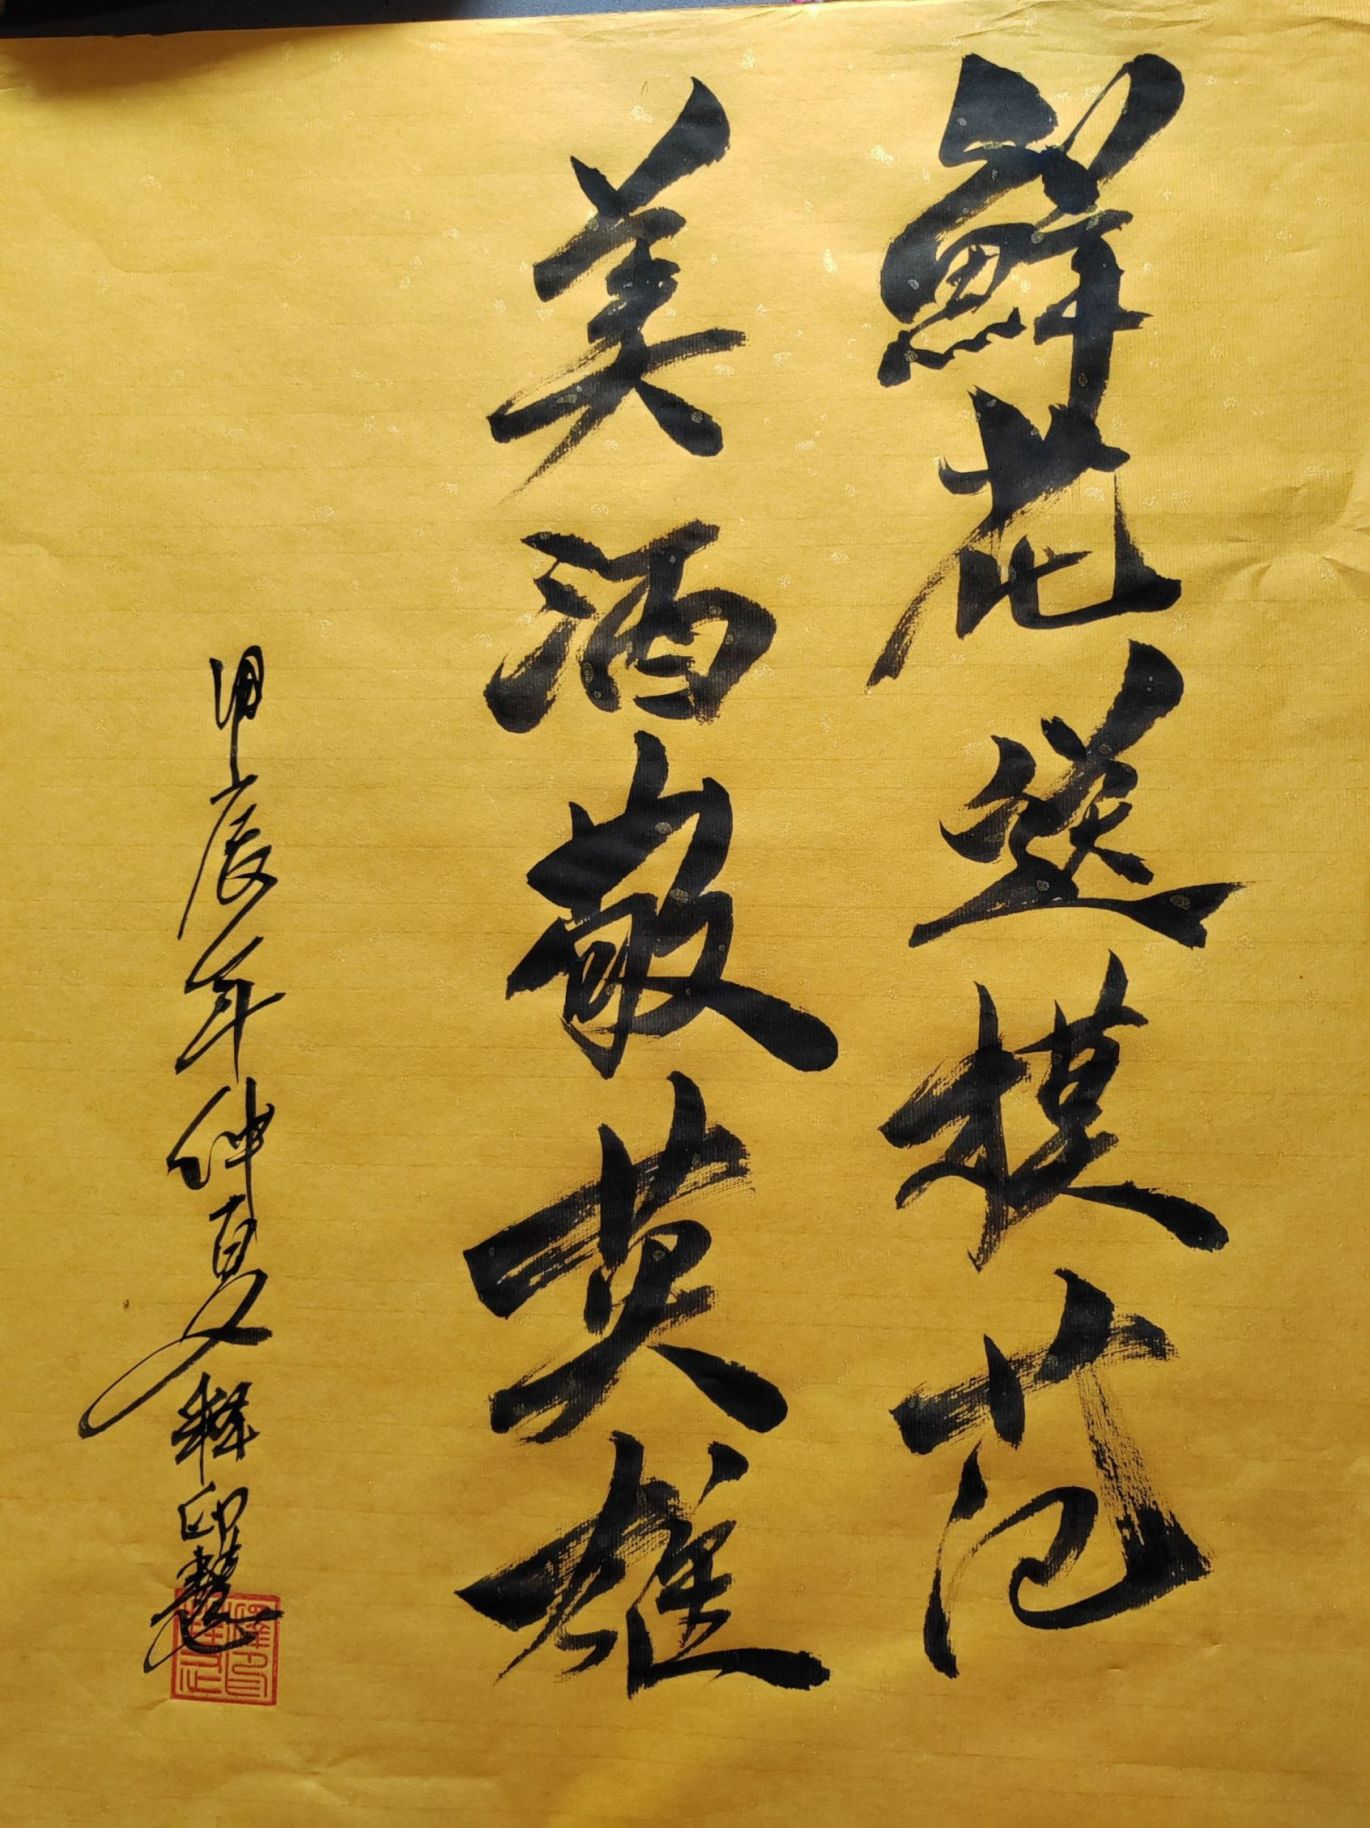 鲜花送模范
美酒敬英雄
甲辰年仲夏释印慧